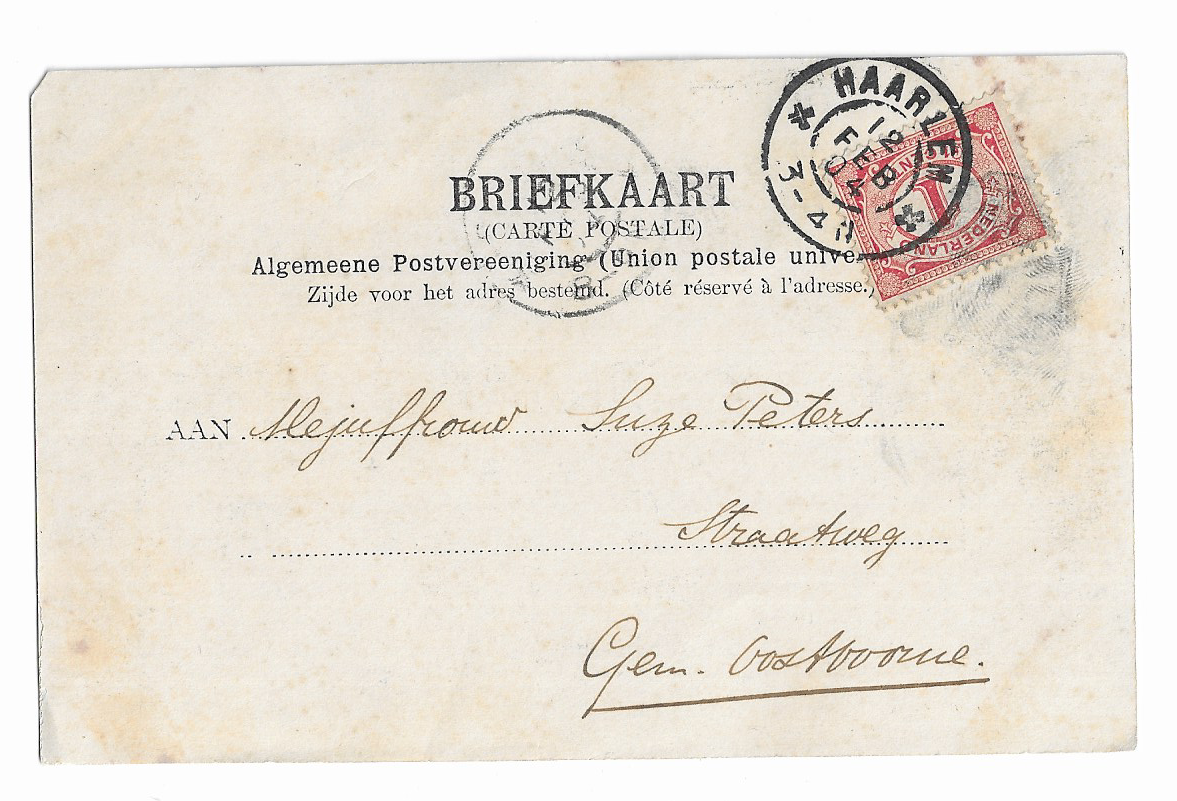 HAARLEM
12 FEB 04
3-4N
NEDERLAND
1
CENT
BRIEFKAART
(CARTE POSTALE)
Algemeene Postvereeniging (Union postale unive
Zijde voor het adres bestemd. (Côté réservé à l'adresse.)
AAN Mejuffrouw Suze Peters
Straatweg
Gem. Oostvoorne.